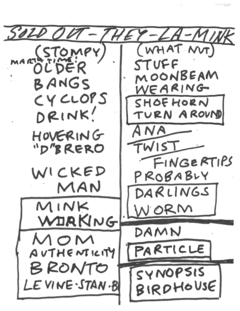 SOLD OUT - THEY - LA - MINK
(STOMPY)
OLDER
BANGS
CYCLOPS
DRINK!
HOVERING
"D"BRERO
WICKED
MAN
MINK
WORKING
MOM
AUTHENTICITY
BRONTO
LEVINE-STAN-B
(WHAT NUT)
STUFF
MOONBEAM
WEARING
SHOEHORN
TURN AROUND
ANA
TWIST
FINGERTIPS
PROBABLY
DARLINGS
WORM
DAMN
PARTICLE
SYNOPSIS
BIRDHOUSE